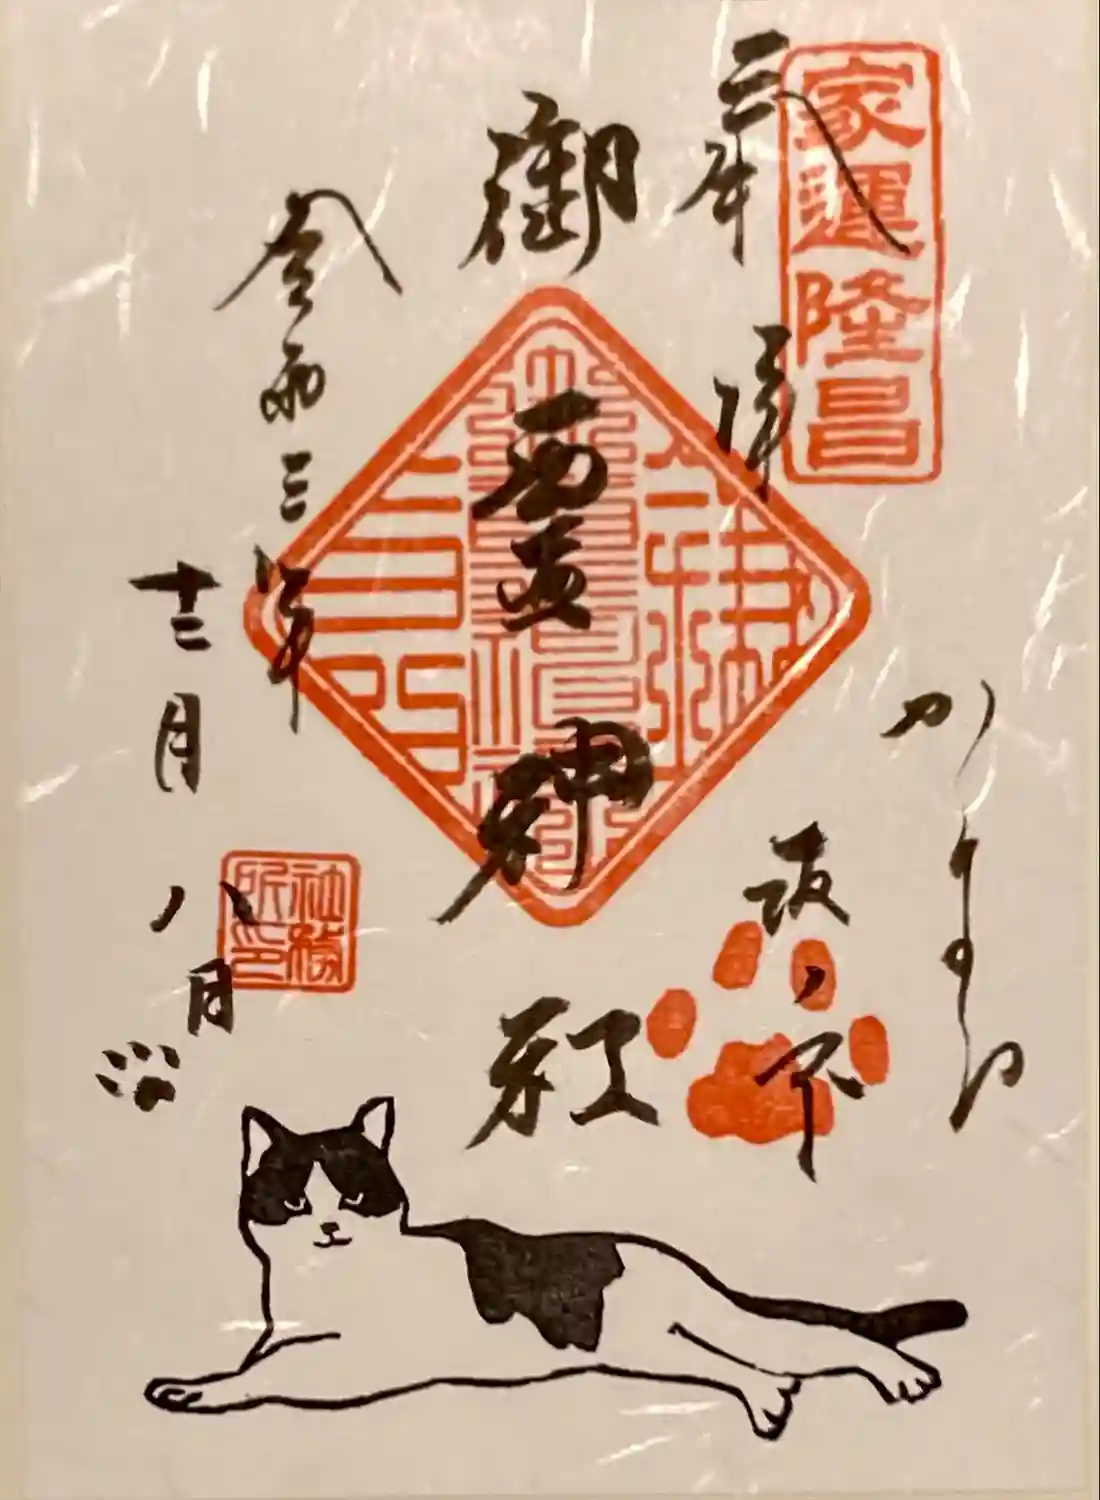 家運隆昌
奉拝
かまくら
坂ノ下
御霊神社
令和三年
十二月八日
社務所印